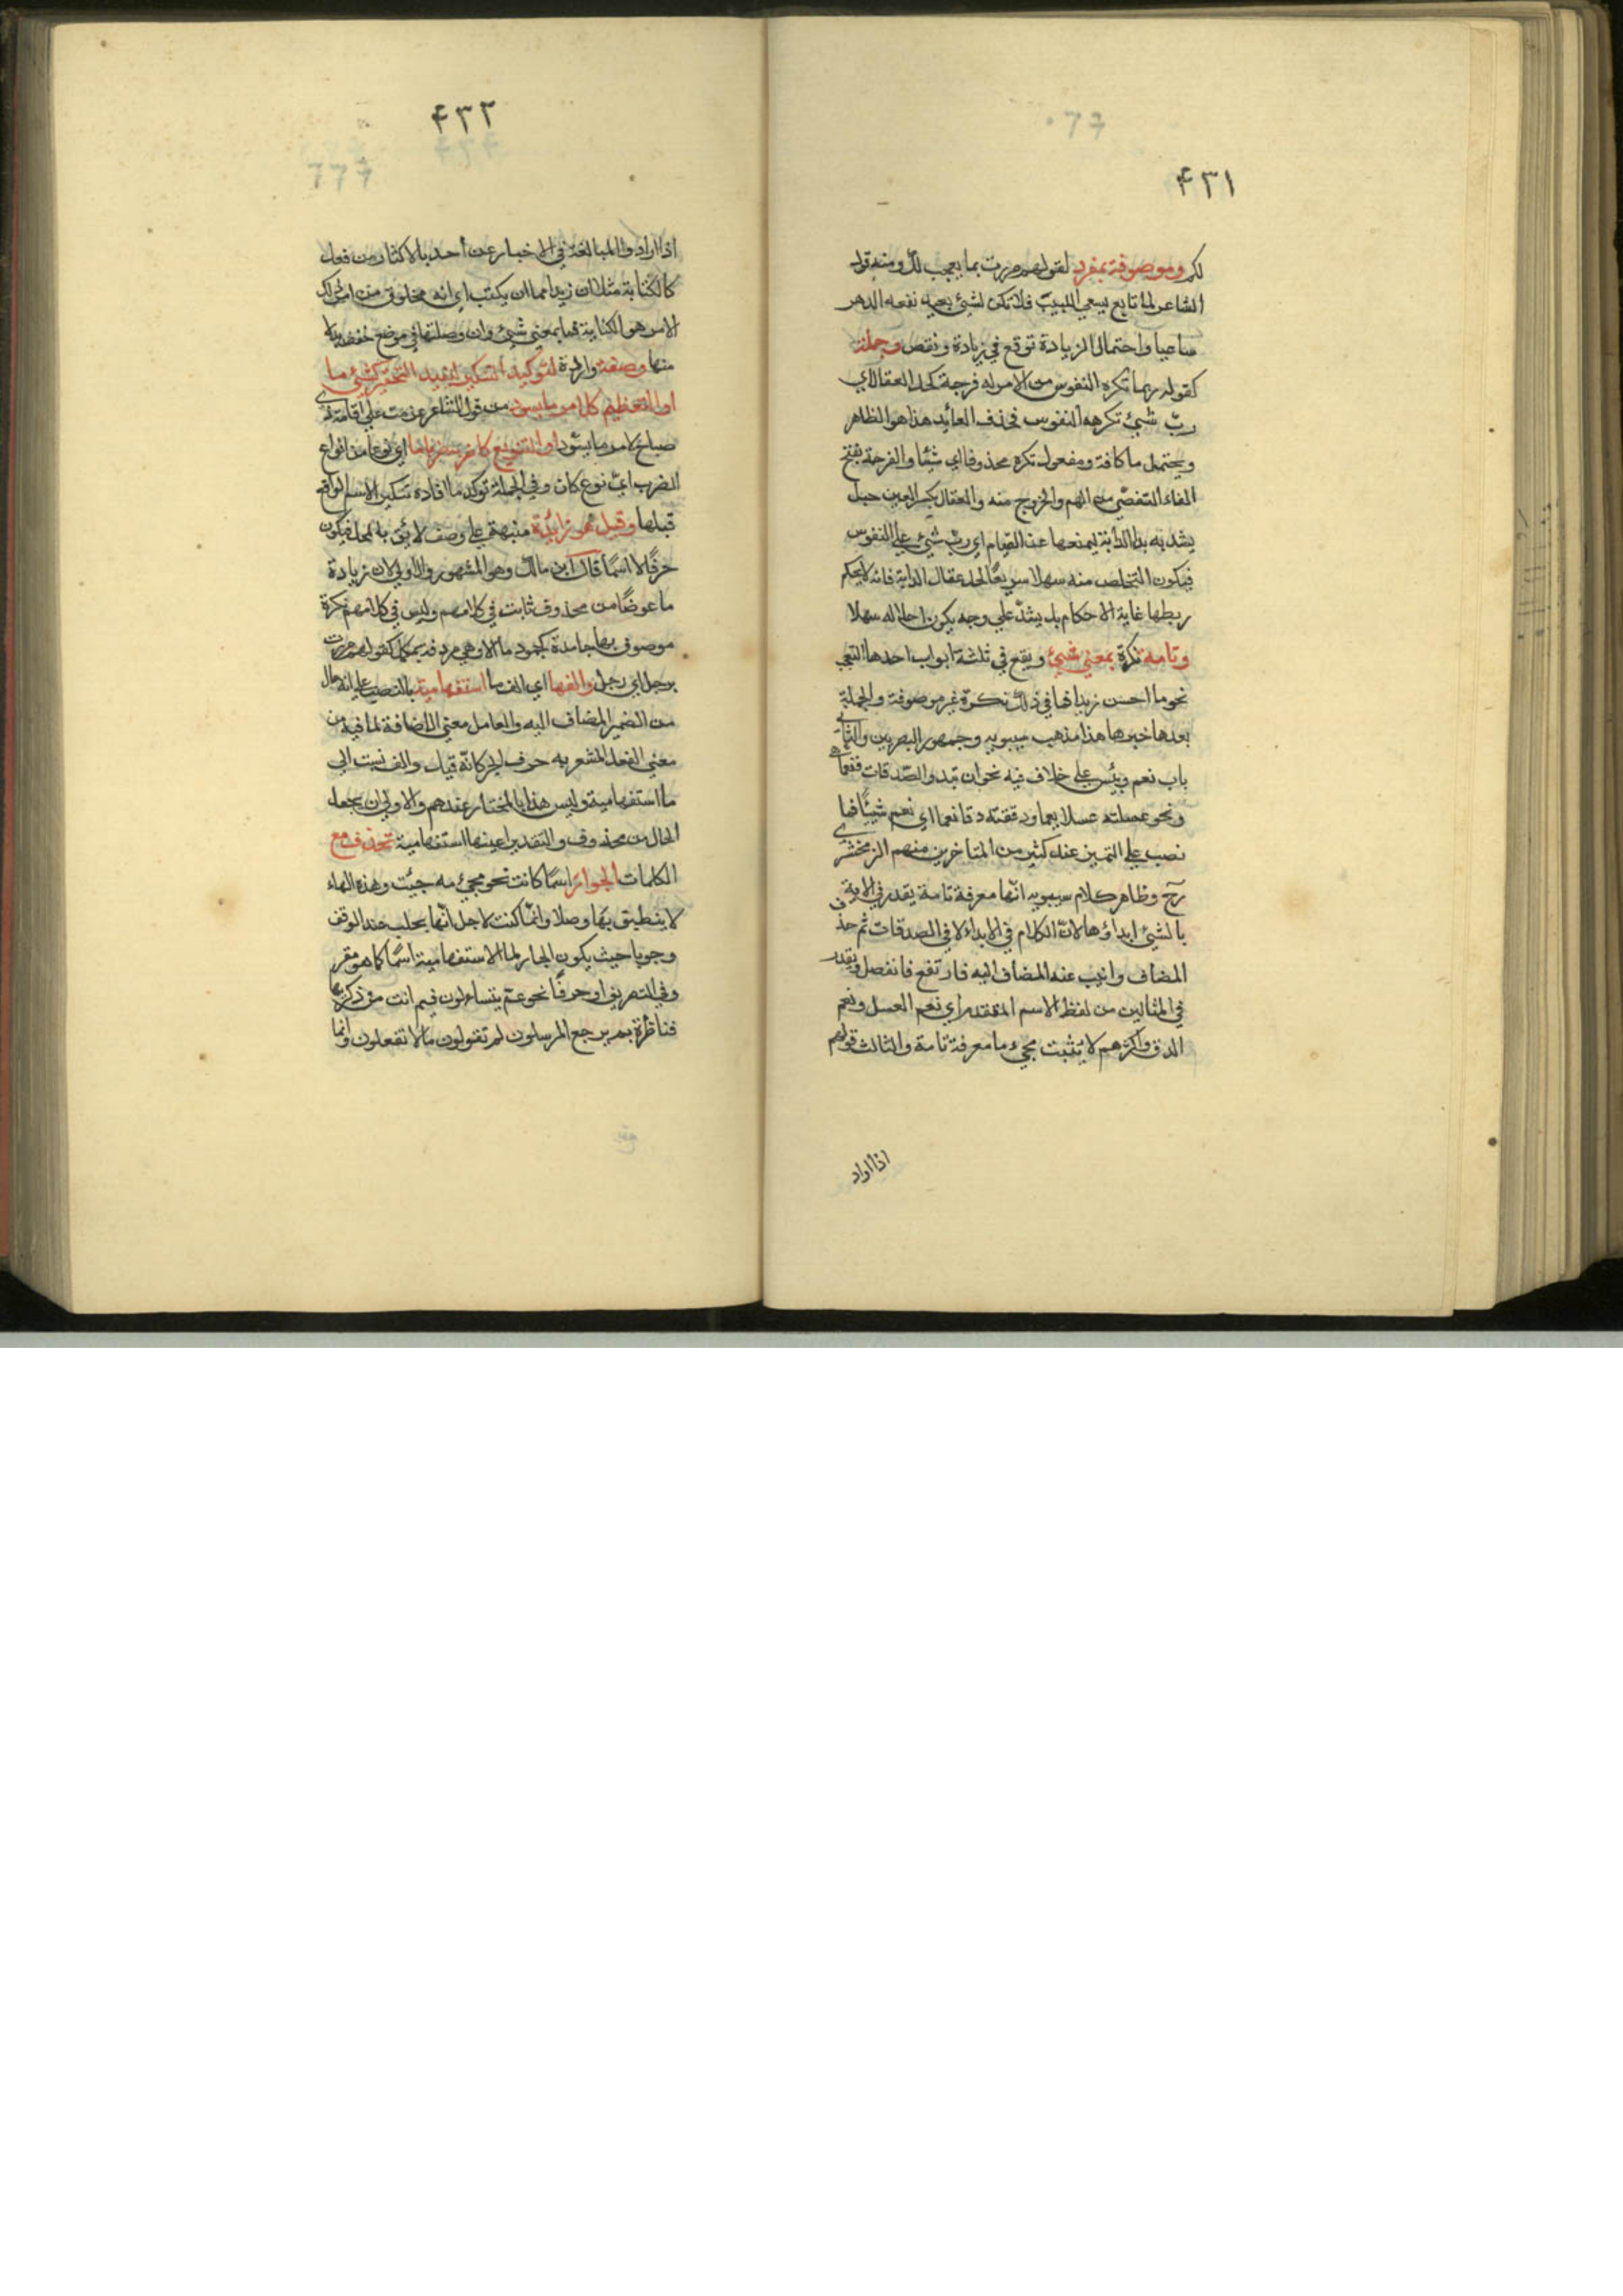 ۴۳۱
لكم وموصوفة بمفرد لقولهم مررت بما يعجب لك ومنه قول
الشاعر لما نافع يسعي اللبيب فلا تكن لشيئ بعيد نفعه الدهر
ساعيا واحتمال الزيادة توقع في زيادة ونقص وجملة
كقوله ربما تكره النفوس من الامر له فرجة كحل العقال اي
ربّ شيئ تكرهه النفوس فحذف العائد هذا هو الظاهر
ويحتمل ما كافة ومفعول تكره محذوفا اي شيئا والفرجة بفتح
الفاء التفصّي من الهم والخروج منه والعقال بكسر العين حبل
يشد به يد الدابة ليمنعها عن القيام اي ربّ شيئ علي النفوس
فيكون التخلص منه سهلا سريعًا كحل عقال الدابة فانه لا يحكم
ربطها غاية الاحكام بل يشدّ علي وجه يكون احلاله سهلا
وتامة نكرة بمعني شيئ ويقع في ثلثة ابواب احدها التعجب
نحو ما احسن زيدا فما في ذلك نكرة غير موصوفة والجملة
بعدها خبرها هذا مذهب سيبويه وجمهور البصريين والثاني
باب نعم وبئس علي خلاف فيه نحو ان تبدوا الصّدقات فنعما هي
ونحو غسلته غسلا نعما ودققته دقا نعما اي نعم شيئًا فما
نصب علي التميز عند كثير من المتاخرين منهم الزمخشري
رح وظاهر كلام سيبويه انّها معرفة تامة يقدر في الاية
بالشيئ ابداؤها لانّ الكلام في الابداء لا في الصدقات ثم حذف
المضاف وانيب عنه المضاف اليه فارتفع فانفصل ويقدر
في المثالين من لفظ الاسم المتقدم اي نعم الغسل ونعم
الدق واكثرهم لا يثبت مجيء ما معرفة تامة والثالث قولهم
اذا اراد
۴۳۲
اذا ارادوا المبالغة في الاخبار عن أحد بالاكثار من فعل
كالكتابة مثلا ان زيدا مما ان يكتب اي انه مخلوق من امر ذلك
الامر هو الكتابة فما بمعني شيئ وان وصلتها في موضع خفض بدلا
منها وصفة واردة لتوكيد التنكير لتفيد التحقير كشيئ ما
او التعظيم كلامر ما يسود من قول الشاعر عزمت علي اقامة ذي
صباح لامر ما يسود او التنويع كاضربه ضربا ما اي نوعا من انواع
الضرب ايّ نوع كان وفي الجملة توكد ما افاده تنكير الاسم الواقع
قبلها وقيل هو زائدة منبهة علي وصف لائق بالمحل فيكون
حرفًا لا اسمًا قال ابن مالك وهو المشهور والاولي لان زيادة
ما عوضًا من محذوف ثابت في كلامهم وليس في كلامهم نكرة
موصوف بها جامدة كجمود ما الا وهي مردفة بمكمل كقولهم مررت
برجل اي رجل والفها اي الف ما استفهامية بالنصب علي انه حال
من الضمير المضاف اليه والعامل معني الاضافة لما فيه من
معني الفعل المشعر به حرف الجر كانّه قيل والف نسبت الي
ما استفهامية وليس هذا بالمختار عندهم والاولي ان يجعل
الحال من محذوف والتقدير اعينها استفهامية تحذف مع
الكلمات الجوائر اسمًا كانت نحو مجيئ مه جيئت وهذه الهاء
لا ينطيق بها وصلا وانّما كتبت لاجل انّها يجلب عند الوقف
وجوبا حيث يكون الجار لما الاستفهامية اسمًا كما هو مقرر
وفي التصريف او حرفًا نحو عمّ يتساءلون فيم انت من ذكرها
فناظرة بم يرجع المرسلون لم تقولون ما لا تفعلون وانما